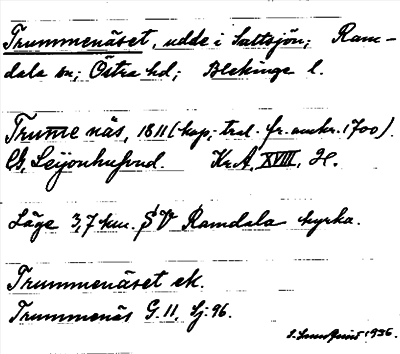 Trummenäset, udde i Saltsjön; Ram-
dala sn; Östra hd; Blekinge l.
Trum̅e näs, 1811 (kop, trol. fr. omkr. 1700).
Leijonhufvud. Kr.A, XVIII, H.
Läge 3,7 km. SV Ramdala kyrka.
Trummenäset ek.
Trummenäs G. 11, Sj: 96.
1936.